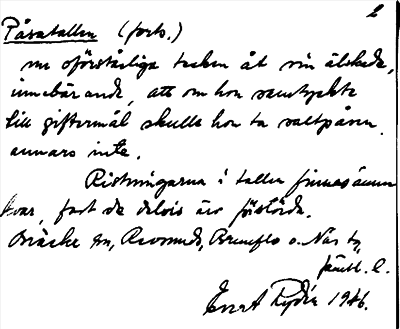 2
Påsatallen (forts.)
nu oförståeliga tecken åt sin älskade,
innebärande, att om hon samtyckte
till giftermål skulle hon ta saltpåsen,
annars inte.
Ristningarna i tallen finnes ännu
kvar, fast de delvis äro förstörda.
Bräcke sn, Revsunds, Brunflo o. Näs tg,
Jämtl. l.
Evert Rydén 1946.